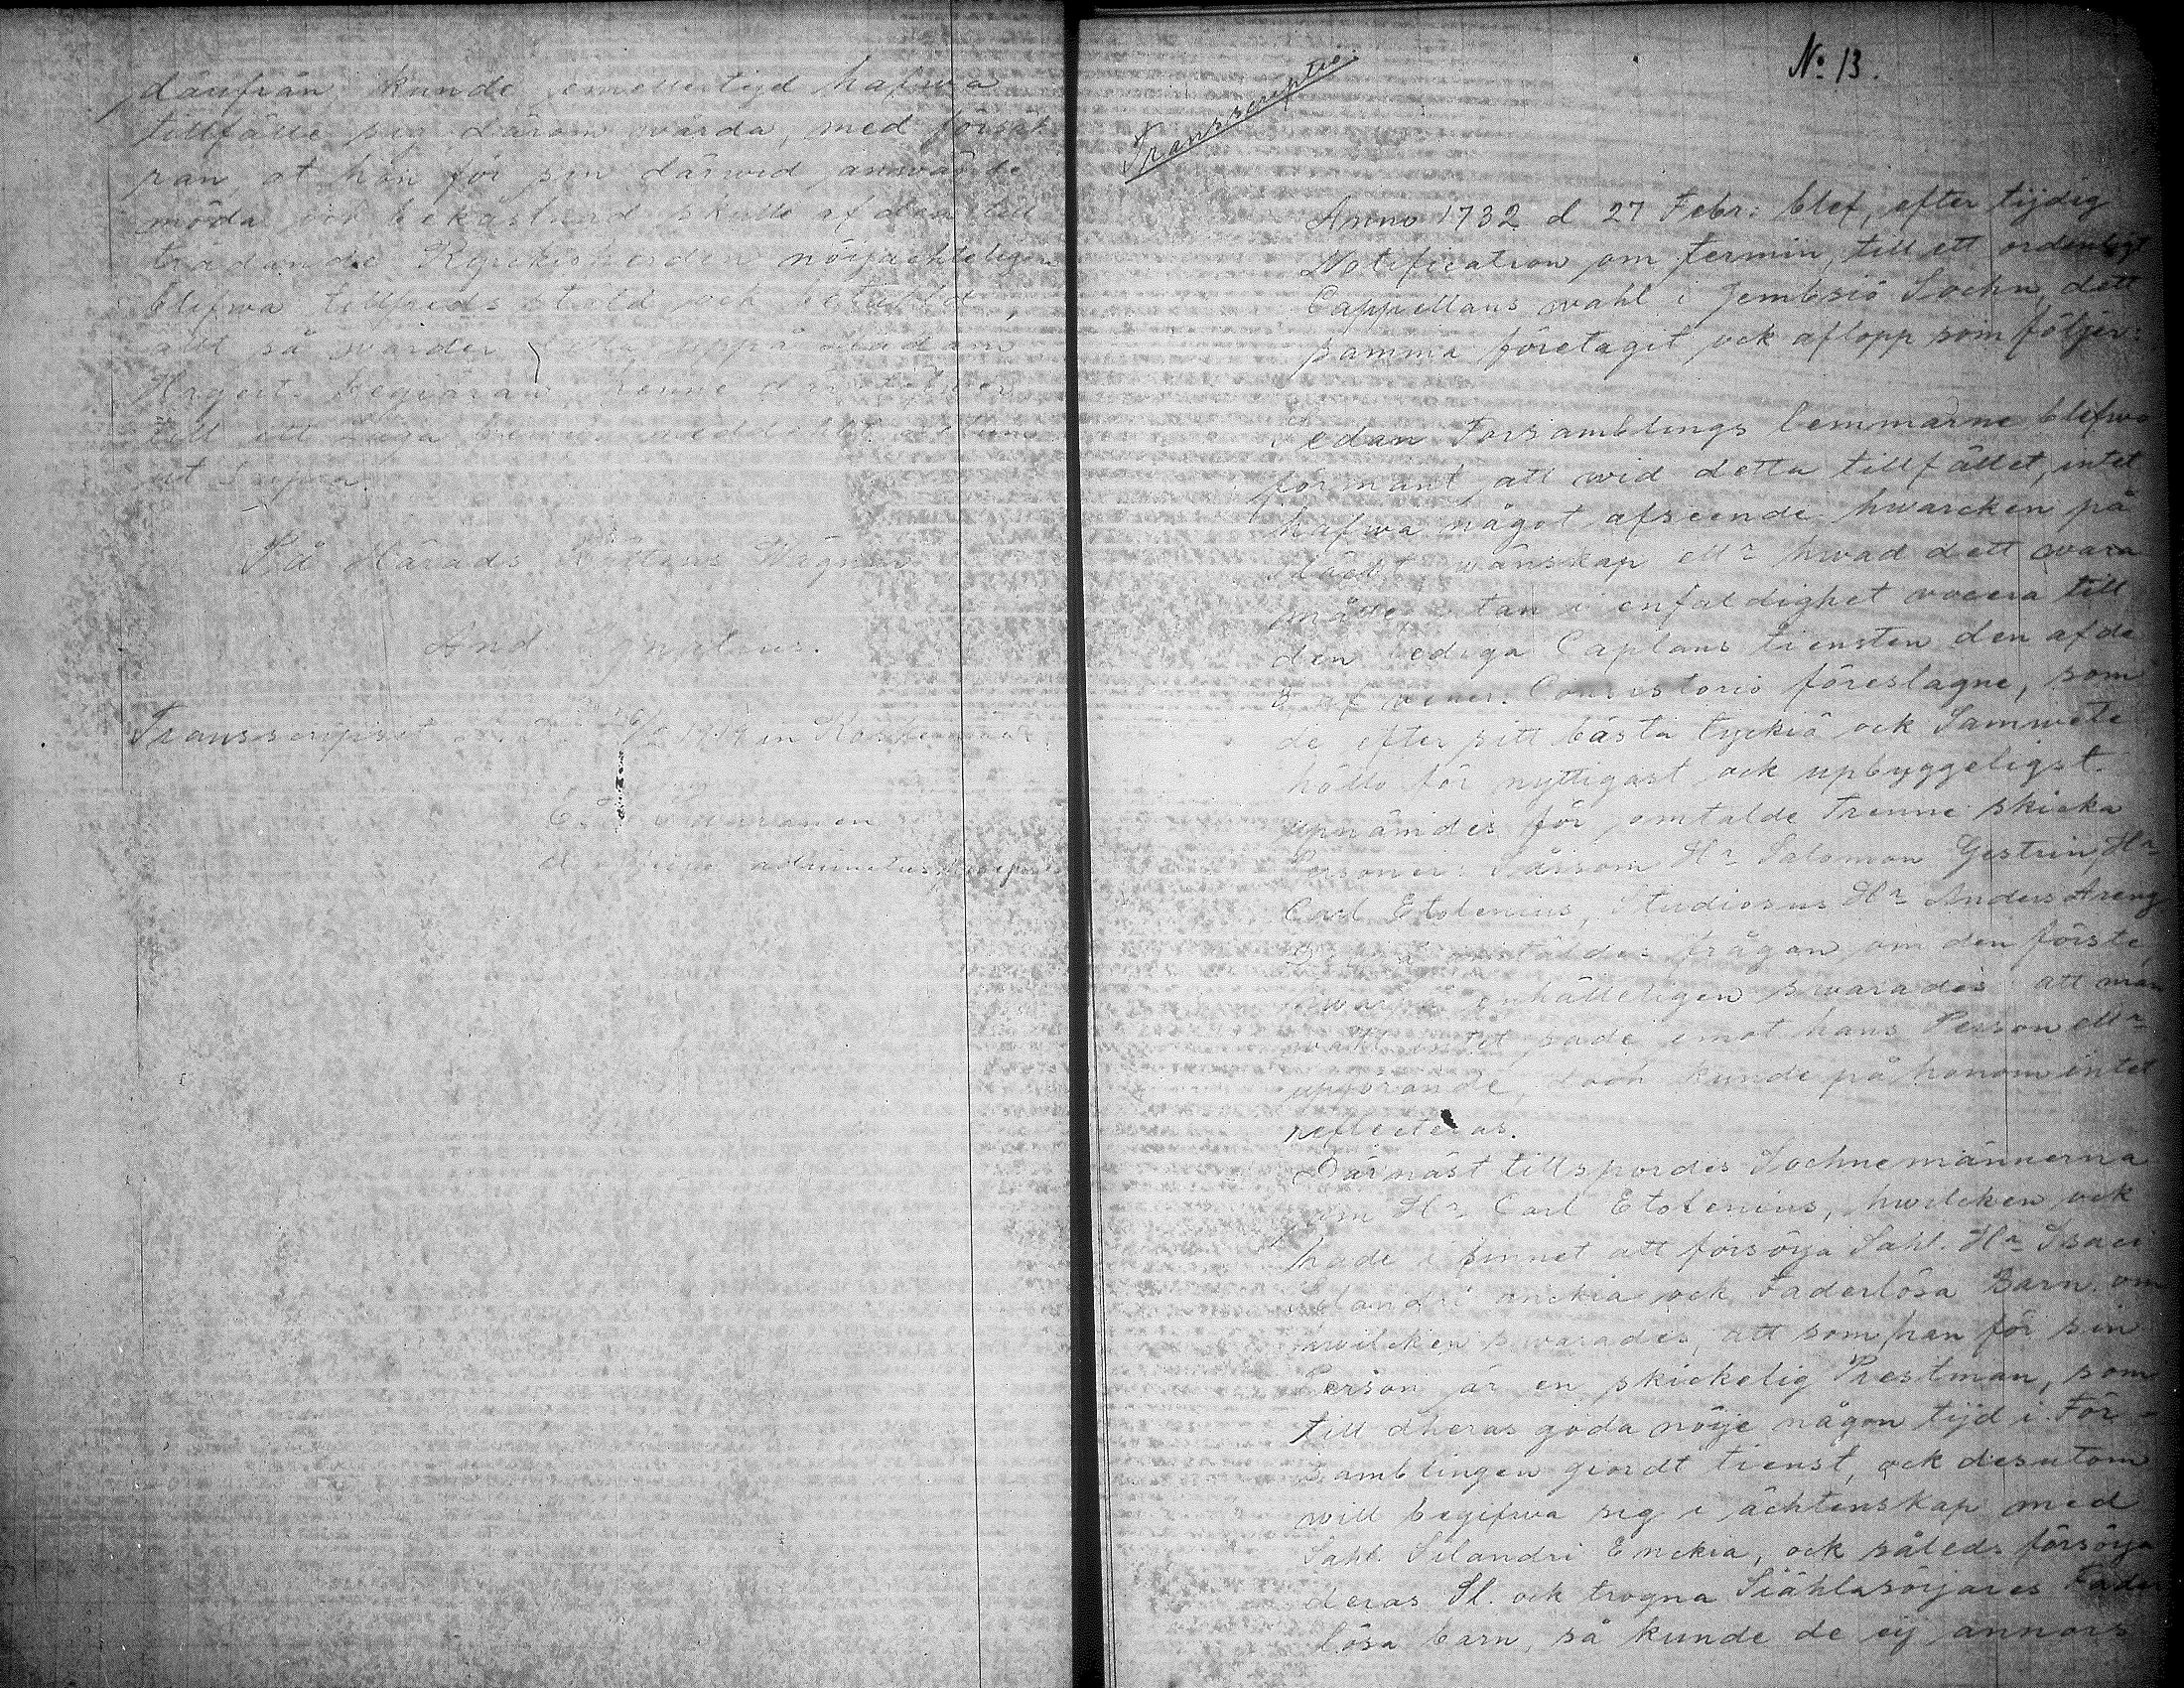 därifrån, kunde emellertijd hafwa
tillfälle sig därom wårda, med försäk
ran, at hon för sin därwid anwände
möda och bekåstnad skulle af den till
trädande Kyrckioherden nöijachteligen
blifwa tillfreds stäld och betahld,
alt så warder detta uppå Madam
begiäran henne
till ett
ut supra.
På Härads Rättens Wägnar
And.
Transscripsit 1919 in
N:o 13.
Transscriptio.
Anno 1732 d 27 Febr: blef, efter tijdig
Notification om termin, till ett ordenligt
Cappellans wahl i Jembsiö Sochn, dett
samma företagit ock aflopp som följer:
Sedan Forsamblings lemmarne blefwo
förmant, att wid detta tillfället, intet
hafwa något afseende hwarcken på
wänskap ellr hwad dett wara
måtte, utan i enfaldighet vocera till
den lediga Caplans tiensten den af de
3 af vener. Consistorio föreslagne, som
de efter sitt bästa tyckiö ock Samwete
hollo för nyttigast ock upbyggeligst.
upnämdes för omtalde Trenne skicka
Personer: Såsom Hr Salomon Gestrin, Hr
Carl Etolenius, Studiosus Hr Anders Areng
anstäldes frågan om den förste,
hwarpå enhälleligen swarades: att man
wäll intet hade emot hans Person ellr
upförande, doch kunde på honom intet
reflecteras.
Därnäst tillspordes Sochnemännerna
om Hr Carl Etolenius, hwilcken ock
hade i sinnet att försörja Sahl. Hr Isaci
Selandri änckia ock Faderlösa Barn. om
hwilcken swarades, att som han för sin
Person är en skickelig Prestman, som
till dheras goda nöije någon tijd i För-
samblingen giordt tienst, ock desutom
will begifwa sig i ächtenskap med
Sahl. Silandri Enckia, ock således försörja
deras Sl. ock trogna Siählasörjares Fader
lösa barn, så kunde de eij annors